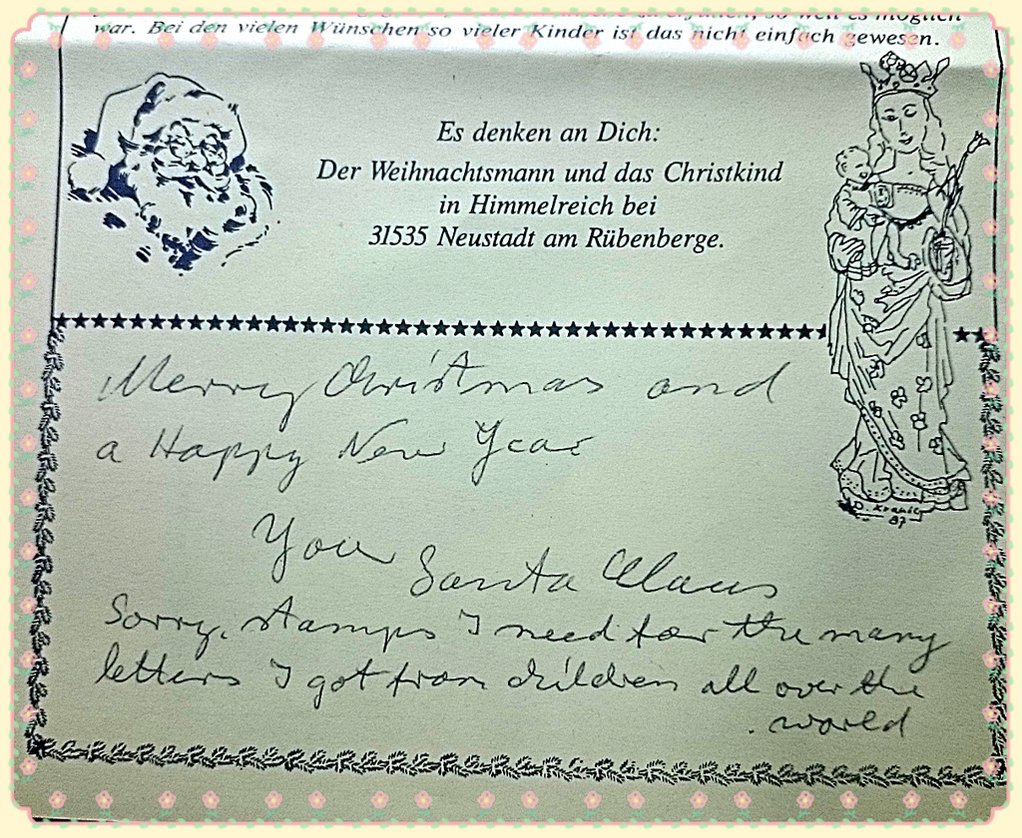 so weit es möglich
war. Bei den vielen Wünschen so vieler Kinder ist das nicht einfach gewesen.
Es denken an Dich:
Der Weihnachtsmann und das Christkind
in Himmelreich bei
31535 Neustadt am Rübenberge.
Merry Christmas and
a Happy New Year
Your Santa Claus
Sorry, stamps I need for the many
letters I got from children all over the
world
87